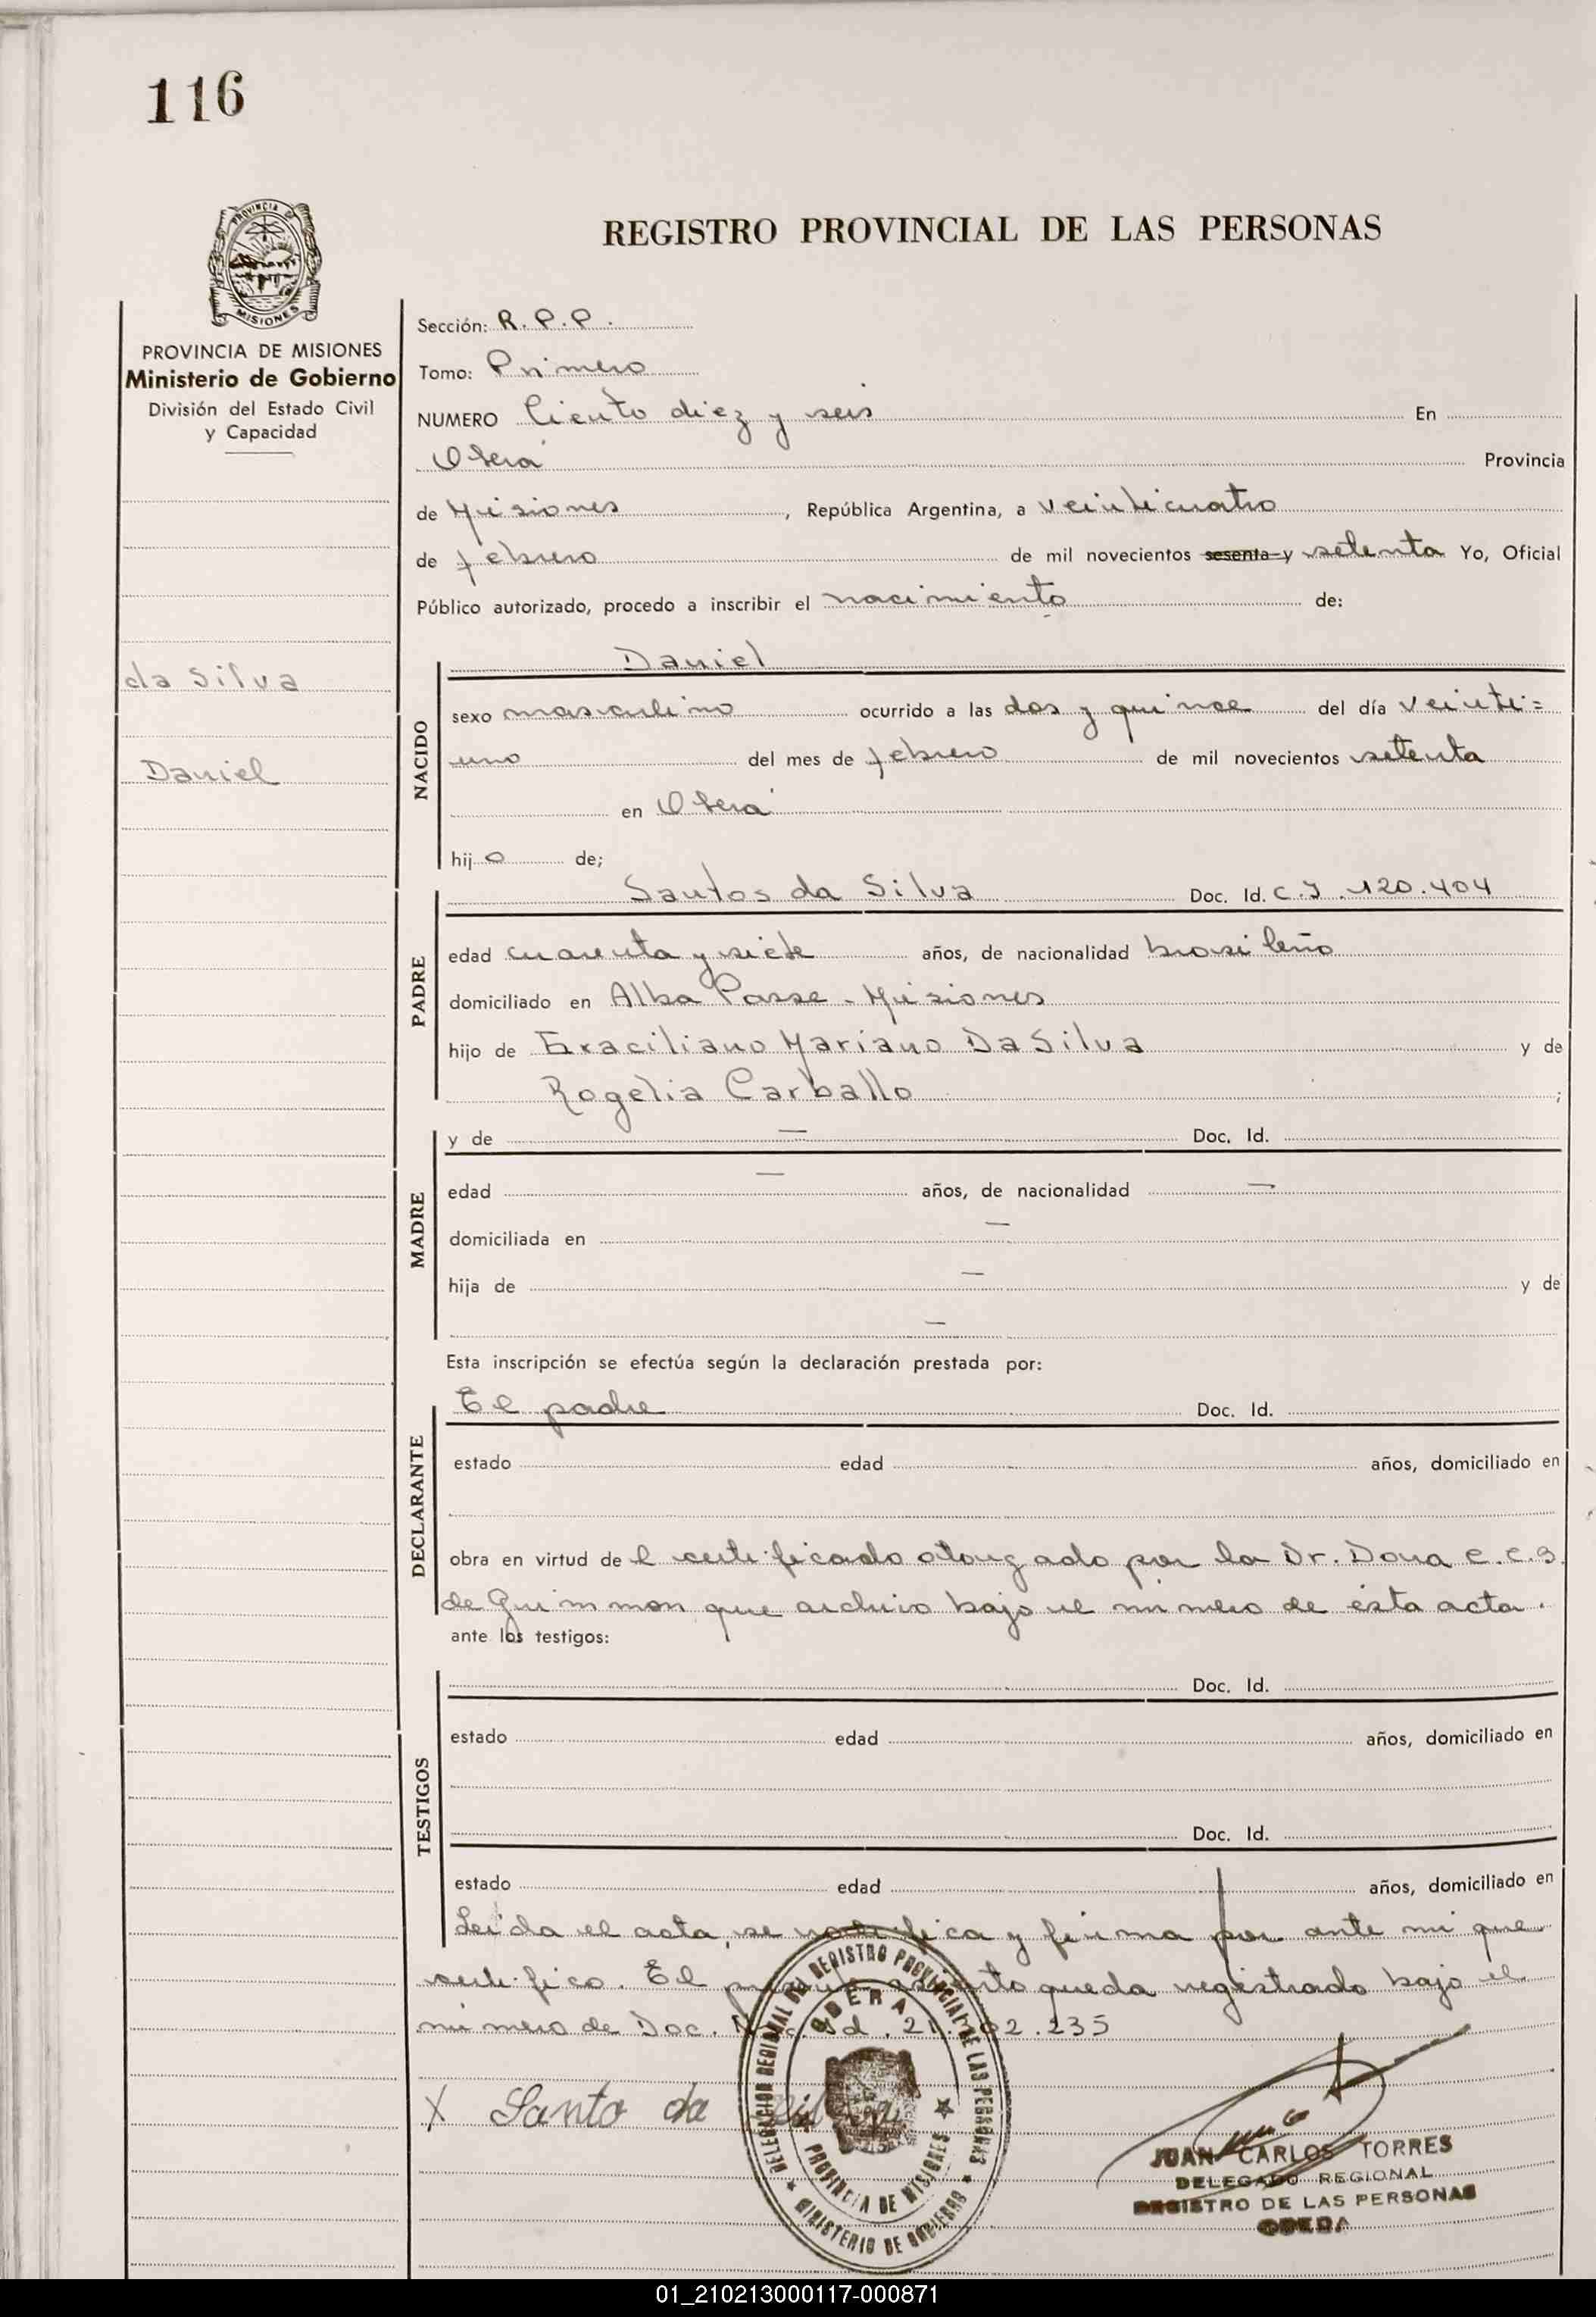 116
REGISTRO PROVINCIAL DE LAS PERSONAS
PROVINCIA DE
MISIONES
PROVINCIA DE MISIONES
Ministerio de Gobierno
División del Estado Civil
y Capacidad
da Silva
Daniel
Sección: R. P. P.
Tomo: Primero
NUMERO Ciento diez y seis En
Oberá Provincia
de Misiones, República Argentina, a veinticuatro
de febrero de mil novecientos sesenta y setenta Yo, Oficial
Público autorizado, procedo a inscribir el nacimiento de:
NACIDO
Daniel
sexo masculino ocurrido a las dos y quince del día veinti=
uno del mes de febrero de mil novecientos setenta
en Oberá
hijo de;
PADRE
Santos da Silva Doc. Id. C.I. 120.404
edad cuarenta y siete años, de nacionalidad brasileño
domiciliado en Alba Posse - Misiones
hijo de Graciliano Mariano Da Silva y de
Rogelia Carballo ;
MADRE
y de — Doc. Id.
edad — años, de nacionalidad —
domiciliada en —
hija de — y de
—
Esta inscripción se efectúa según la declaración prestada por:
DECLARANTE
El padre Doc. Id.
estado edad años, domiciliado en
obra en virtud del certificado otorgado por la Dr. Dora C. C. B.
de que archivo bajo el número de ésta acta.
ante los testigos:
TESTIGOS
Doc. Id.
estado edad años, domiciliado en
Doc. Id.
estado edad años, domiciliado en
Leída el acta, se ratifica y firma por ante mi que
certifico. El presente asiento queda registrado bajo el
número de Doc. Nac. Id. 21. 02.235
X Santo da Silva
DELEGACION REGIONAL DEL REGISTRO PROVINCIAL DE LAS PERSONAS
OBERA
PROVINCIA DE MISIONES
MINISTERIO DE GOBIERNO
JUAN CARLOS TORRES
DELEGADO REGIONAL
REGISTRO DE LAS PERSONAS
OBERA
01_210213000117-000871